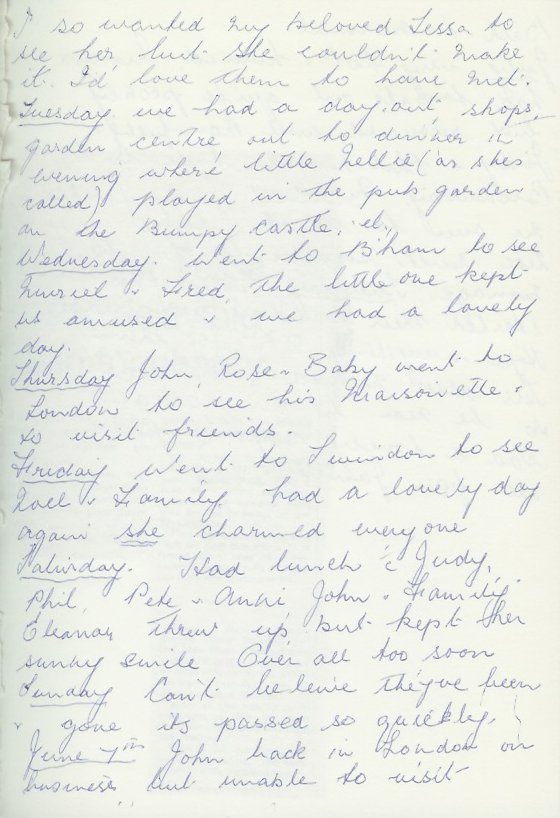 I so wanted my beloved Tessa to
see her, but she couldn't make
it. I'd love them to have met.
Tuesday we had a day out, shops,
garden centre out to dinner in
evening where little Nellie (as shes
called) played in the pub garden
on the Bumpy castle, etc,
Wednesday. Went to B'ham to see
Muriel & Fred, the little one kept
us amused & we had a lovely
day.
Thursday John, Rose & Baby went to
London to see his Maisonette &
to visit friends.
Friday Went to Swindon to see
Noel & Family. had a lovely day
again she charmed everyone
Saturday. Had lunch c̄ Judy,
Phil, Pete & Anni, John & Family.
Eleanor threw up but kept her
sunny smile Over all too soon
Sunday Can't believe they've been
& gone its passed so quickly.
June 7th John back in London on
business but unable to visit